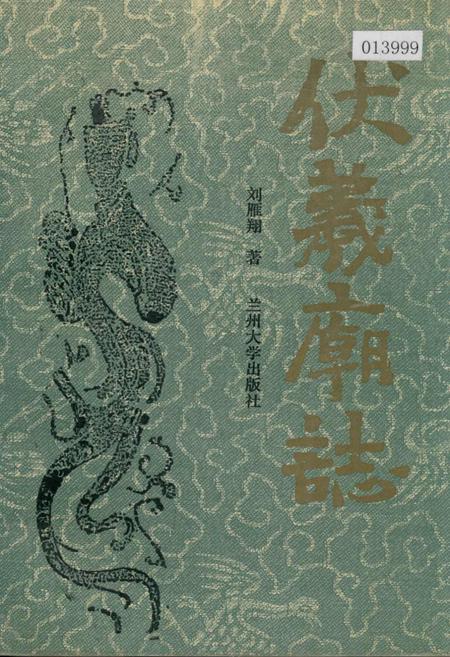 013999
伏羲廟誌
刘雁翔 著 兰州大学出版社